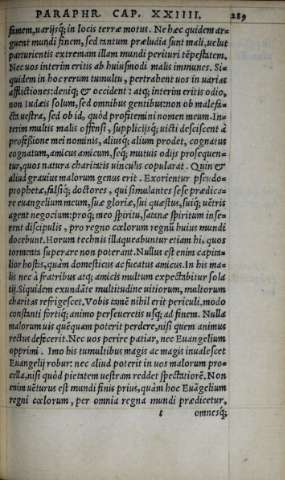 PARAPHR. CAP. XXIIII. 289
famem, uariisq́; in locis terræ motus. Ne hæc quidem ar=
guent mundi finem, sed tantum præludia sunt mali, uelut
parturientis extremam illam mundi perituri tēpestatem.
Nec uos interim eritis ab huiusmodi malis immunes. Si=
quidem in hoc rerum tumultu, pertrahent uos in uarias
afflictiones: deniq; & occident: atq; interim eritis odio,
non Iudæis solum, sed omnibus gentibus: non ob malefa=
cta uestra, sed ob id, quòd profitemini nomen meum. In=
terim multis malis offensi, supplicijsq́;, uicti desciscent à
professione mei nominis, aliusq́; alium prodet, cognatus
cognatum, amicus amicum, seq́; mutuis odijs prosequen=
tur, quos natura charitatis uinculis copularat. Quin &
aliud grauius malorum genus erit. Exorientur pseudo=
prophetæ, falsiq́; doctores, qui simulantes sese prædica=
re euangelium meum, suæ gloriæ, sui quæstus, suiq́; uētris
agent negocium: proq́; meo spiritu, satanæ spiritum inse=
rent discipulis, pro regno cœlorum regnū huius mundi
docebunt. Horum technis illaqueabuntur etiam hi, quos
tormenta superare non poterant. Nullus est enim capita=
lior hostis, quàm domesticus ac fucatus amicus. In his ma=
lis nec à fratribus atq; amicis multum expectabitur sola
tij. Siquidem exundāte multitudine uitiorum, multorum
charitas refrigescet. Vobis tamē nihil erit periculi, modo
constanti fortiq́; animo perseueretis usq; ad finem. Nulla
malorum uis quēquam poterit perdere, nisi quem animus
rectus defecerit. Nec uos perire patiar, nec Euangelium
opprimi. Imo his tumultibus magis ac magis inualescet
Euangelij robur: nec aliud poterit in uos malorum pro=
cella, nisi quòd pietatem uestram reddet spectatiorē. Non
enim uēturus est mundi finis prius, quàm hoc Euāgelium
regni cœlorum, per omnia regna mundi prædicetur,
t omnesq́;